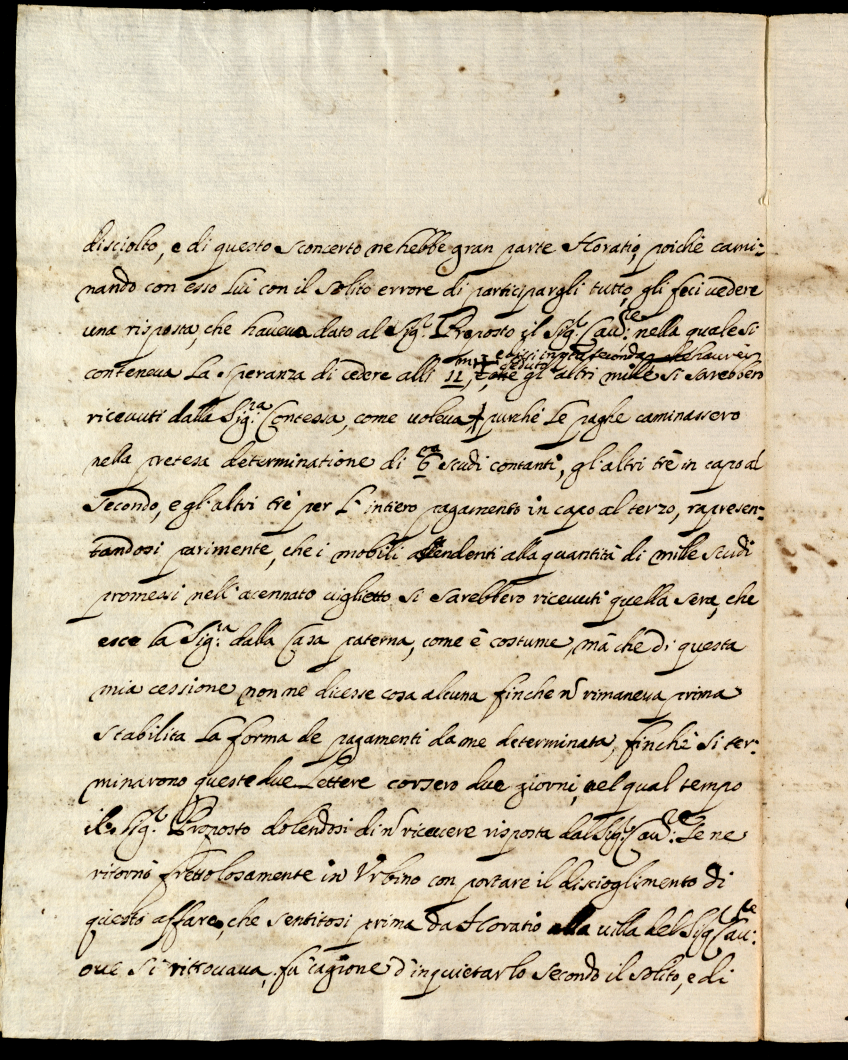 disciolto, e di questo sconcerto ne hebbe gran parte Horatio, poiche cami=
nando con esso lui con il solito errore di participargli tutto, gli feci vedere
una risposta, che haveva dato al Sig.r Proposto il Sig.r Cav.re nella quale si
conteneva la speranza di cedere alli 11/m, e che gl'altri mille si sarebbero
ricevuti dalla Sig.ra Contessa, come voleva purché le paghe caminassero
nella pretesa determinatione di 6/m scudi contanti, gl'altri trè in capo al
secondo, e gl'altri trè per l'intiero pagamento in capo al terzo, rapresen=
tandosi parimente, che i mobili ascendenti alla quantità di mille scudi
promessi nell'acennato viglietto si sarebbero ricevuti quella sera, che
esce la Sig.ra dalla Casa paterna, come è costume, mà che di questa
mia cessione non ne dicesse cosa alcuna finche ñ rimaneva prima
stabilita la forma de pagamenti da me determinata, finchè si ter=
minarono queste due lettere corsero due giorni, nel qual tempo
il Sig.r Proposto dolendosi di ñ ricevere risposta dal Sig.r Cav.re se ne
ritornò frettolosamente in Urbino con portare il discioglimento di
questo affare, che sentitosi prima da Horatio alla villa del Sig.r Cav.re
ove si ritrovava, fù cagione d'inquietarlo secondo il solito, e di